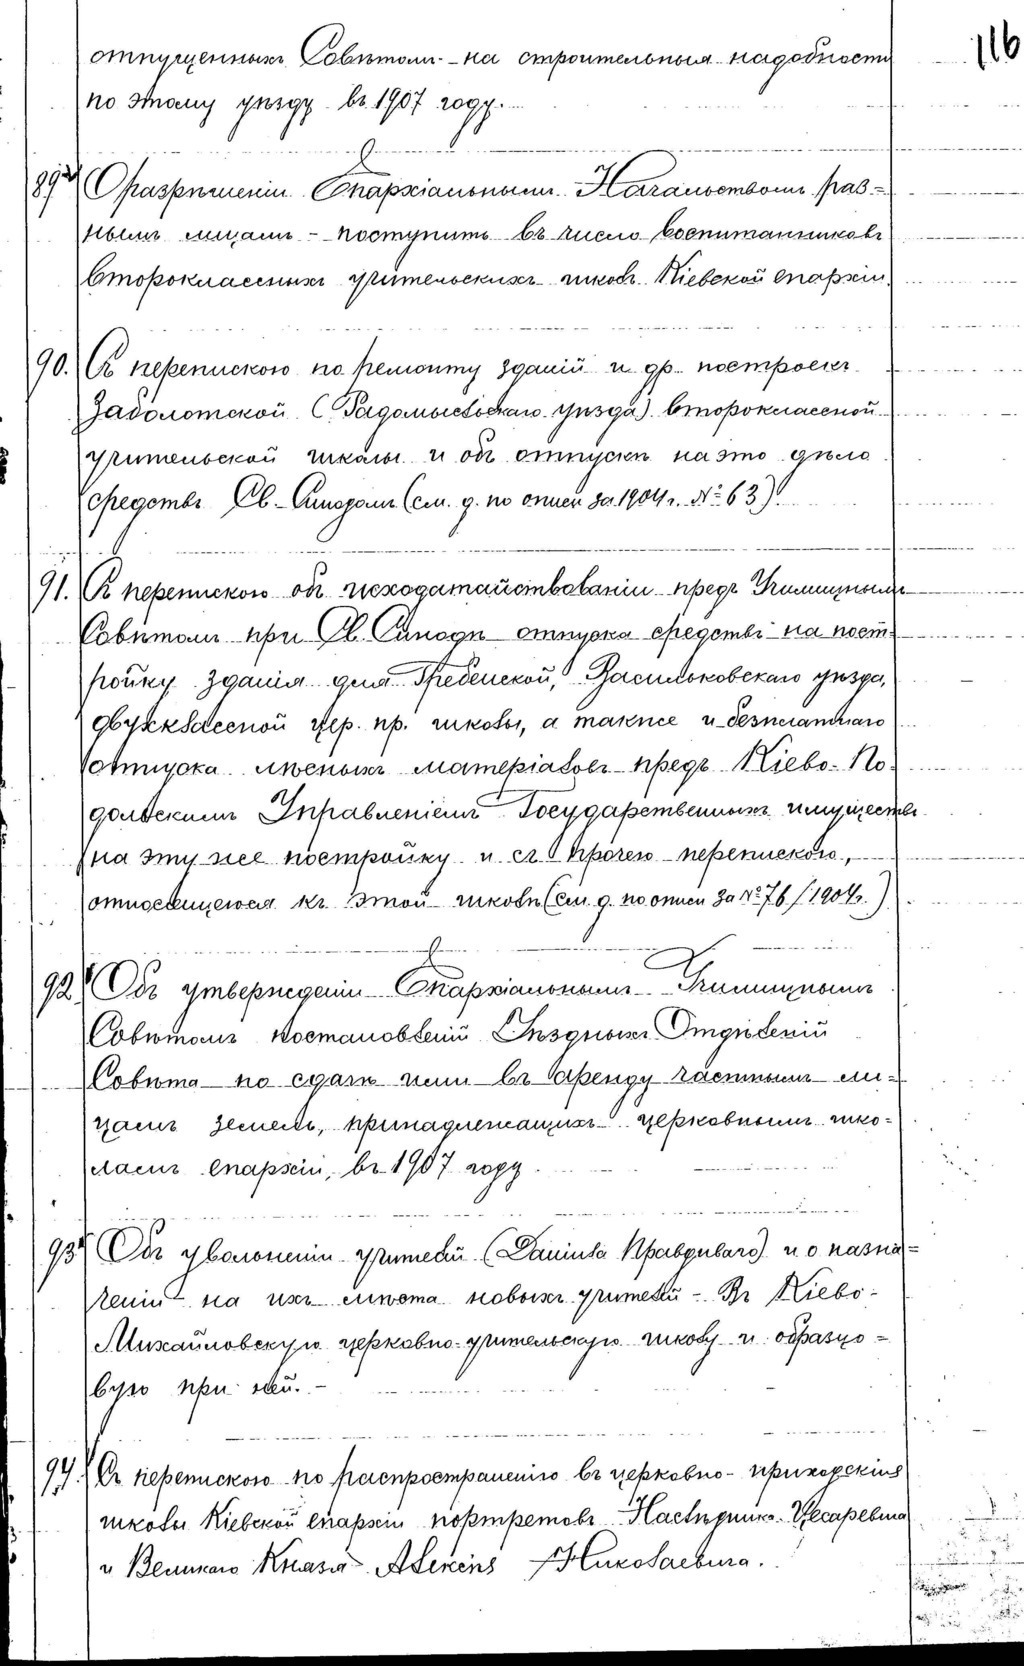 116
отпущенныхъ Совѣтомъ - на строительныя надобности
по этому уѣзду въ 1907 году.
89. О разрѣшеніи Епархіальнымъ Начальствомъ раз=
нымъ лицамъ - поступить въ число воспитанниковъ
второклассныхъ учительскихъ школъ Кіевской епархіи.
90. Съ перепискою по ремонту зданій и др. построекъ
Заболотской (Радомысльскаго уѣзда) второклассной
учительской школы и объ отпускѣ на это дѣло
средствъ Св. Синодомъ (см. д. по описи за 1904 г. № 63).
91. Съ перепискою объ исходатайствованіи предъ Училищнымъ
Совѣтомъ при Св. Синодѣ отпуска средствъ на пост=
ройку зданія для Гребенской, Васильковскаго уѣзда,
двухклассной цер. пр. школы, а также и безплатнаго
отпуска лѣсныхъ матеріаловъ предъ Кіево-По-
дольскимъ Управленіемъ Государственныхъ имуществъ
на эту же постройку и съ прочею перепискою,
относящеюся къ этой школѣ (см. д. по описи за № 76 / 1904 г.)
92. Объ утвержденіи Епархіальнымъ Училищнымъ
Совѣтомъ постановленій Уѣздныхъ Отдѣленій
Совѣта по сдачѣ ими въ аренду частнымъ ли=
цамъ земель, принадлежащихъ церковнымъ шко=
ламъ епархіи, въ 1907 году.
93. Объ увольненіи учителей (Даніила Правдиваго) и о назна=
ченіи на ихъ мѣста новыхъ учителей - въ Кіево-
Михайловскую церковно-учительскую школу и образцо=
вую при ней. -
94. Съ перепискою по распространенію въ церковно-приходскія
школы Кіевской епархіи портретовъ Наслѣдника Цесаревича
и Великаго Князя Алексѣя Николаевича.